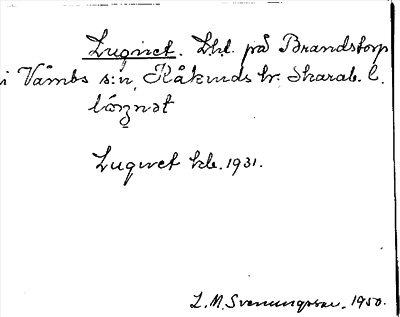 Lugnet. Lht. på Brandstorp
i Vämbs s:n, Kåkinds hr. Skarab. l.
Lugnet kb. 1931.
L. M. Svenungsson. 1950.